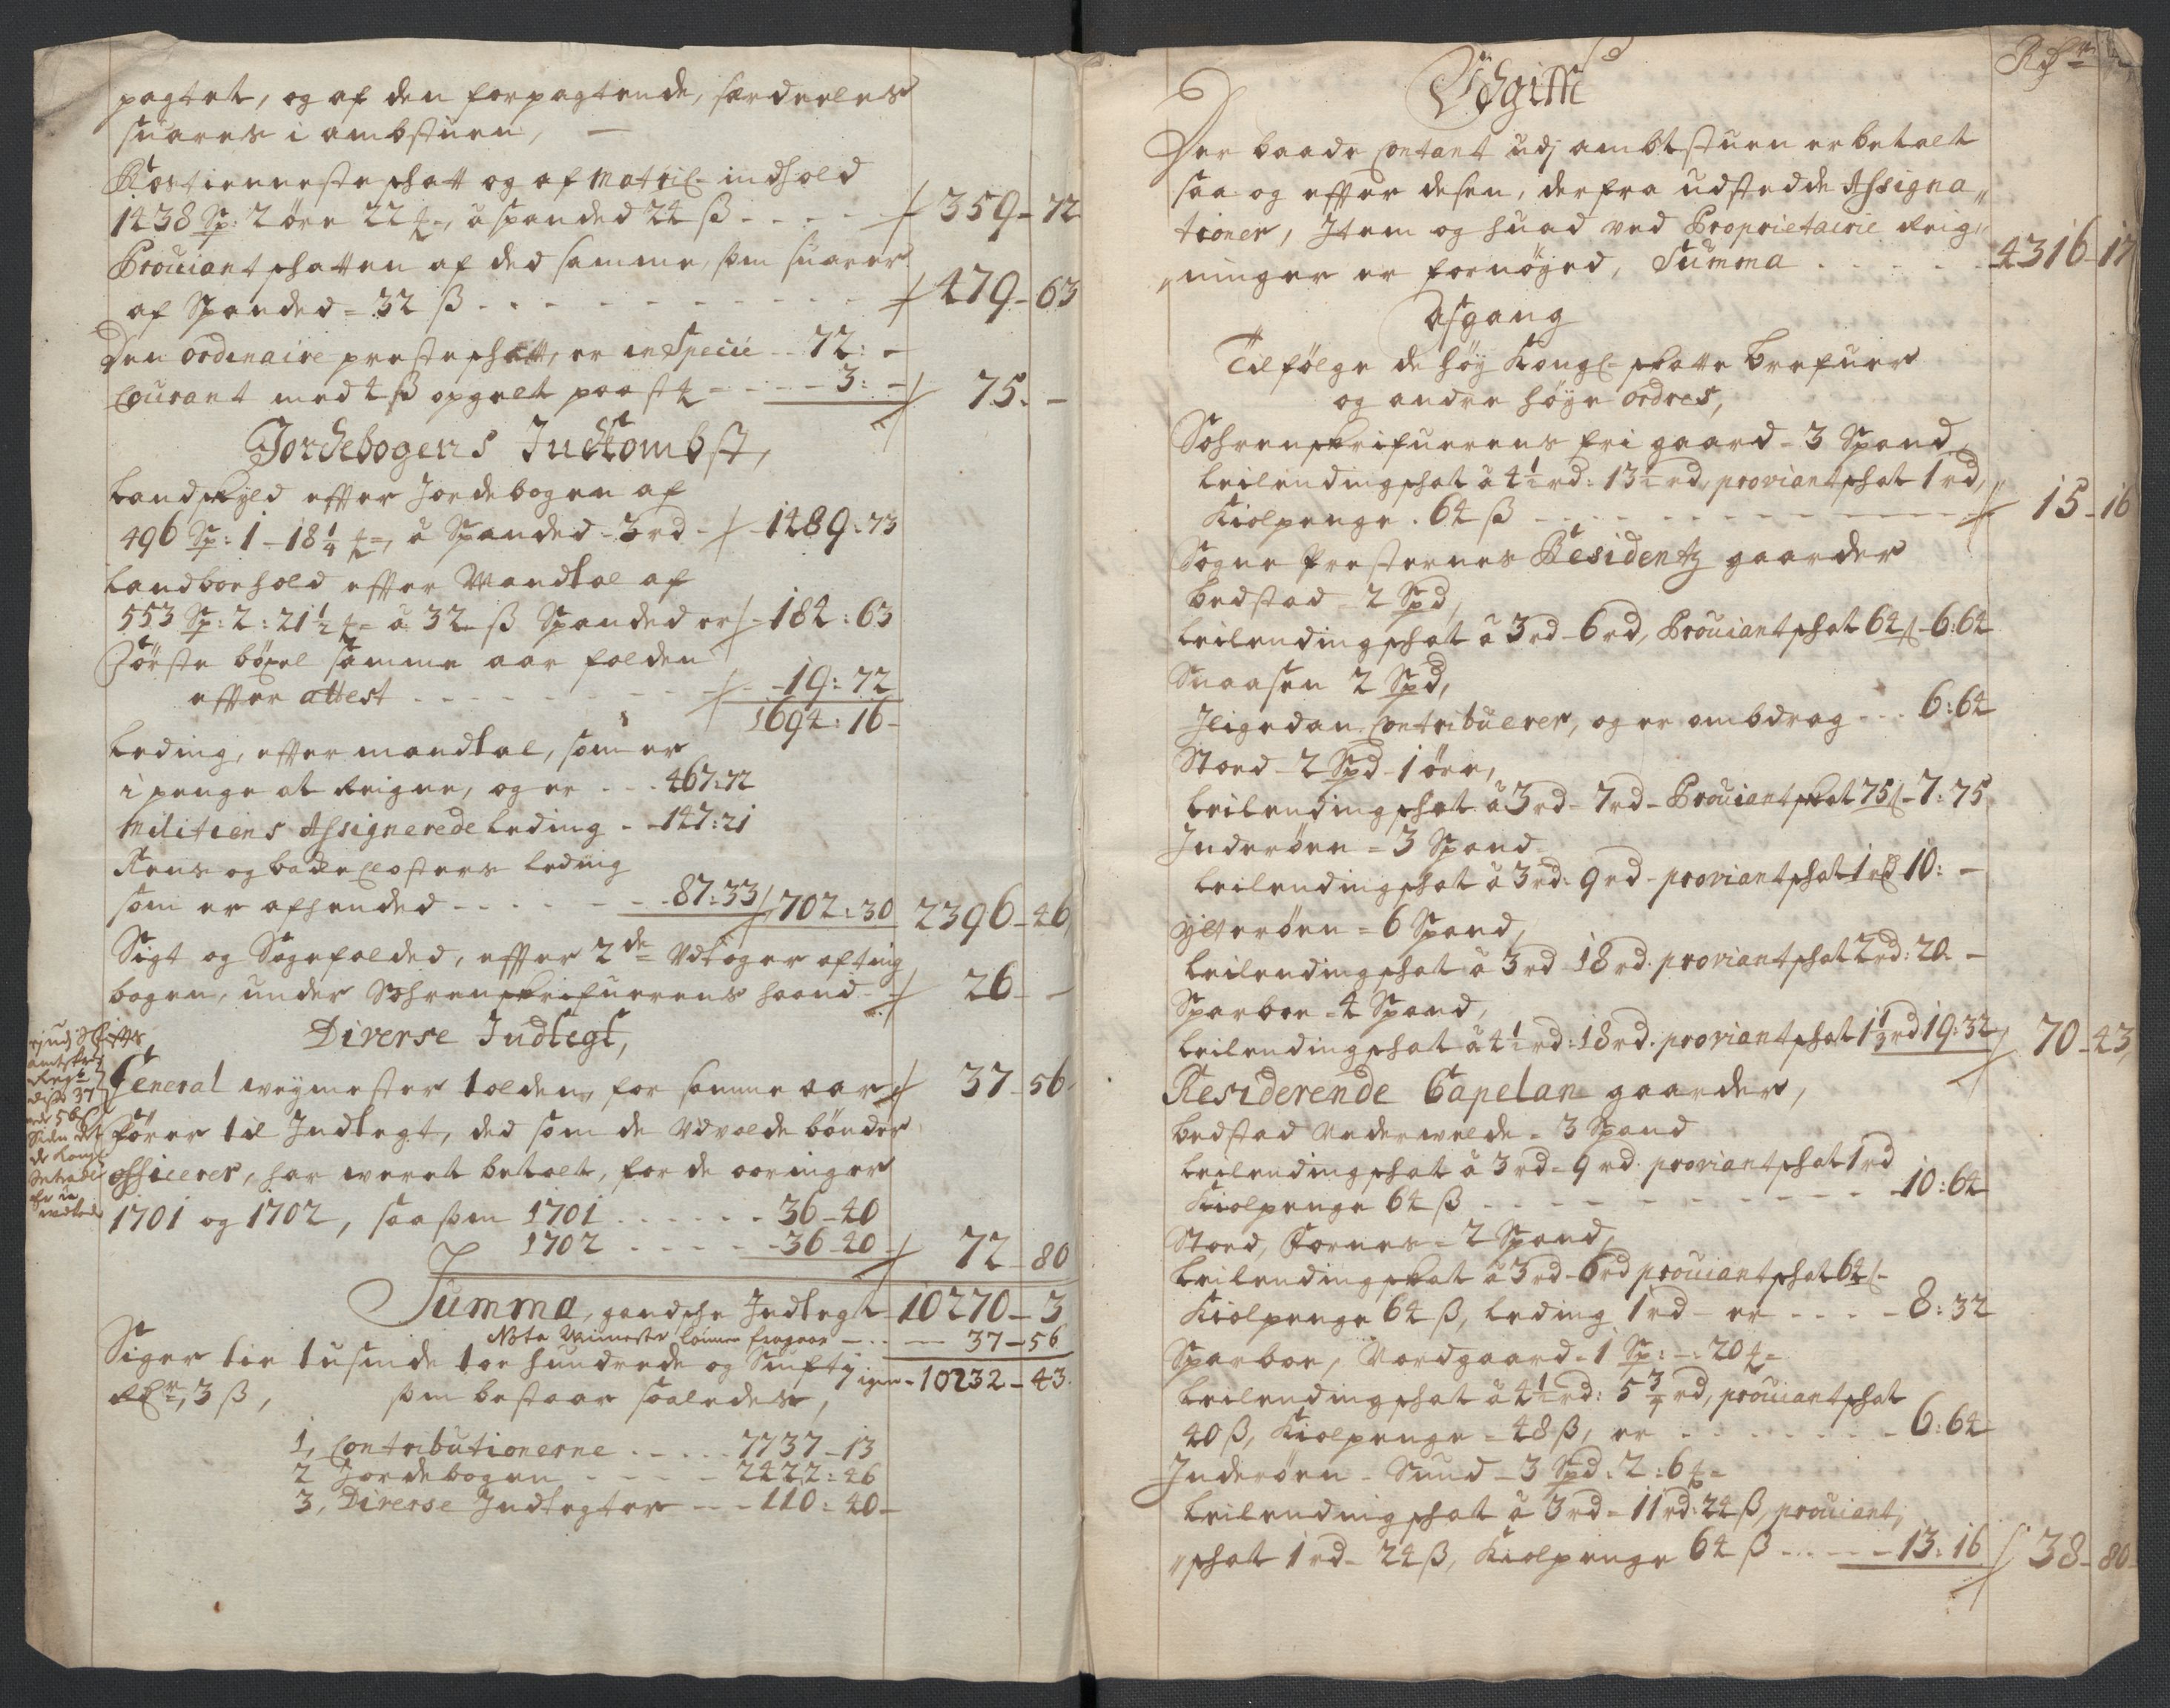 pagtet, og af den forpagtende, særdeeles
suares i ambstuen, —
Rostienneste schatt og af Matric. indhold
1438 Sp: 2 øre 22 , â spanded 24 ß - - - - 359 - 72
Prouiant schatten af ded samme, som suarer
af Spanded = 32 ß - - - - - - - 479 - 63
Den ordinaire prester schatt, er in Specie - - 72: -
Courant med 4 ß opgelt paa st - - - - 3: - 75. -
Jordebogens Indkombst,
Landskyld effter Jordebogen af
496 Sp: 1 - 18 1/4 , â Spanded - 3 rd - 1489: 73
Landboehold effter Mandtal af
553 Sp: 2: 21 1/2 â 32 ß Spanded er 184: 63
Første böxel samme aar falden
effter attest - - - - - - - 19: 72
1694: 16 -
Leding, effter mandtal, som er
i penge at reigne, og er - - - 467: 72
Militiens Assignerede Leding - - 147: 21
Reins og bakke Closters Leding
som er afhended - - - - - - 87: 33 702: 30 2396 - 46
Sigt og Sagefalded, effter 2de Udtoger af ting
bogen, under Sohrenskrifuerens haand - 26 - -
Diverse Indtegt,
General weymester tolden, for samme aar 37 - 56
Fører til Indtegt, ded som de Udvalde bönder
officerer, har weret betalt, for de aaringer
1701 og 1702, saasom 1701 . . . . . . - 36 - 40
1702 . - - - - - 36 - 40 - 72 - 80
Summa, gandsche Indtegt 10270 - 3
Nota Weimester lönnen fragaar — . . — 37 - 56
Siger tie tusinde toe hundrede og Siufty
igien - 10232 - 43.
Rdr, 3 ß, som bestaar saaledes,
1, Contributionerne . . - . . 7737 - 13
2 Jordebogen - - - - - 2422: 46
3, Diverse Indtegter - - - 110: 40 -
Udgifft
Rdr
Der baade Contant udj ambtstuen er betalt
saa og effter desen, derfra udstedde Assigna
tioner, Item og huad ved Proprietairie Reig
ninger er fornöyed, Summa . - . - . - 4316 - 17
Afgang
Tilfølge de høy Kongl. skatte brefuer
og andre høye ordres,
Sohrenskrifuerens fri gaard - 3 Spand,
Leilendingschat â 4 1/2 rd: 13 1/2 rd, proviantschat 1 rd,
Kiolpenge . 64 ß - - - - - - - - - 15 - 16
Sogne Presternes Residentz gaarder
Bedstad - 2 Spd,
Leilendingschat â 3 rd - 6 rd, Prouiantschat 64 ß - 6: 64
Snaasen 2 Spd,
Iligedan Contribuerer, og er ombdrag - - . 6: 64
Stoed - 2 Spd - 1 øre,
Leilendingschat â 3 rd - 7 rd - Prouiantschat 75 ß - 7: 75
Inderøen = 3 Spand
Leilendingschat â 3 rd - 9 rd - proviantschat 1 rd 10: -
Ytterøen = 6 Spand,
Leilendingschat â 3 rd 18 rd. proviantschat 2 rd: 20 -
Sparboe - 4 Spand,
Leilendingschat â 4 1/2 rd: 18 rd. proviantschat 1 1/3 rd 19: 32 70 - 43
Residerende Capelan gaarder,
Bedstad Underwelde - 3 Spand
Leilendingschat â 3 rd - 9 rd. proviantschat 1 rd
Kiolpenge 64 ß - - - - - - - - - 10: 64
Stoed, Fornes - 2 Spand,
Leilendingschat â 3 rd - 6 rd prouiantschat 64 ß -
Kiolpenge 64 ß, Leding 1 rd - er - - - - 8: 32
Sparboe, Nordgaard - 1 Sp: - : 20
Leilendingschat â 4 1/2 rd: 5 3/4 rd, prouiantschat
40 ß, Kiolpenge - 48 ß, er - - - - - - 6: 64
Inderøen - Sund - 3 Spd: 2: 6
Leilendingschat â 3 rd - 11 rd: 24 ß, prouiant
schat 1 rd - 24 ß, Kiolpenge 64 ß - - - - 13: 16 38 - 80